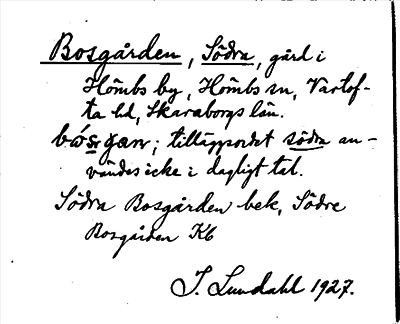 Bosgården, Södra, gård i
Hömbs by, Hömbs sn, Vartof-
ta hd, Skaraborgs län.
; tilläggsordet södra an-
vändes icke i dagligt tal.
Södra Bosgården bek, Södre
Bosgården Kb
J. Lundahl 1927.